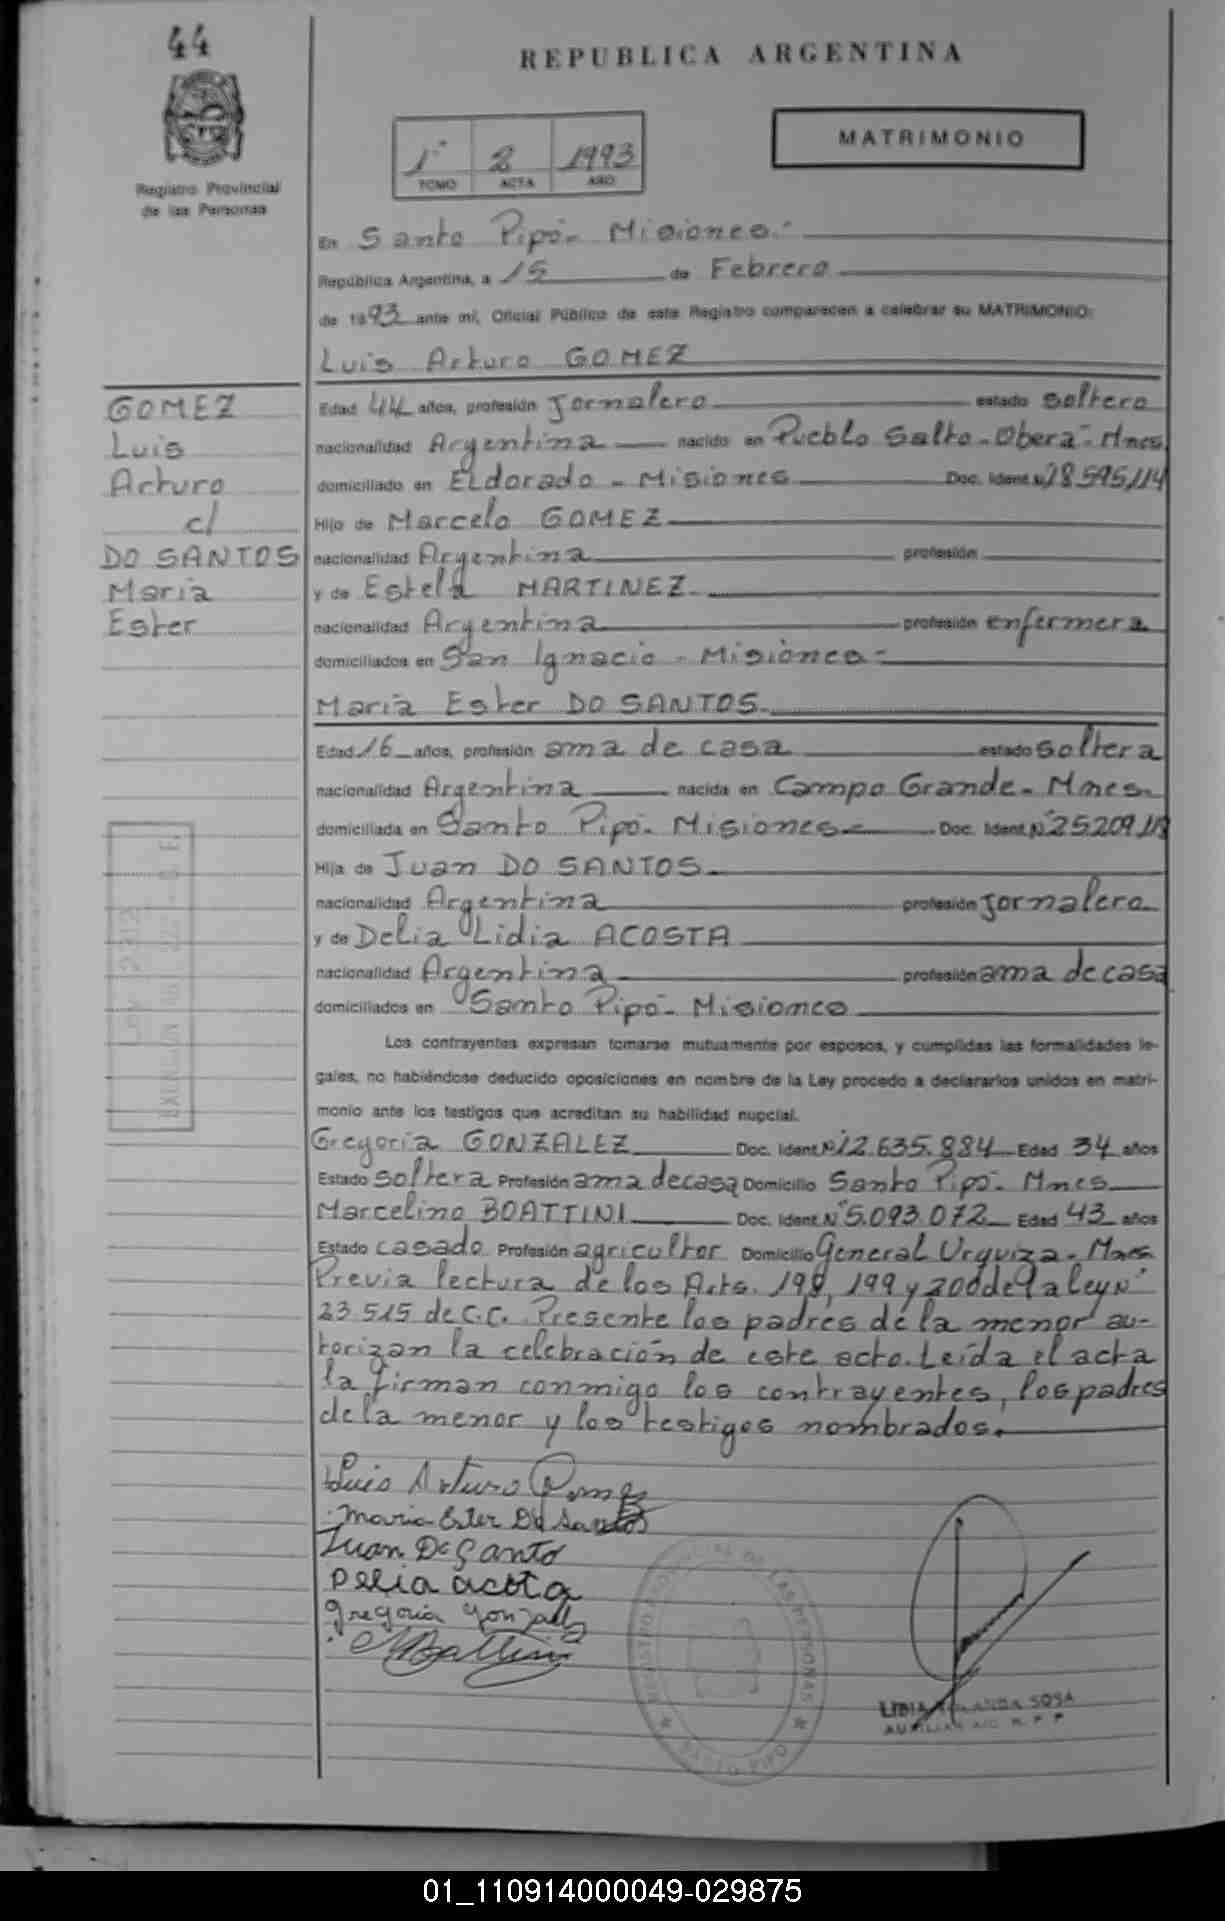 44
REPUBLICA ARGENTINA
Registro Provincial
de las Personas
1° 2 1993
TOMO ACTA AÑO
MATRIMONIO
En Santo Pipó - Misiones.-
República Argentina, a 15 de Febrero
de 1993 ante mí, Oficial Público de este Registro comparecen a celebrar su MATRIMONIO:
Luis Arturo GOMEZ
GOMEZ
Luis
Arturo
c/
DO SANTOS
Maria
Ester
Edad 44 años, profesión Jornalero estado soltero
nacionalidad Argentina nacido en Pueblo Salto - Oberá - Mnes.
domiciliado en ELdorado - Misiones Doc. Ident. N° 18.595.114
Hijo de Marcelo GOMEZ
nacionalidad Argentina profesión
y de Estela MARTINEZ
nacionalidad Argentina profesión enfermera
domiciliados en San Ignacio - Misiones -
Maria Ester DO SANTOS.
Edad 16 años, profesión ama de casa estado soltera
nacionalidad Argentina nacida en Campo Grande - Mnes.
domiciliada en Santo Pipó - Misiones - Doc. Ident. N° 25.209.118
Hija de Juan DO SANTOS.
nacionalidad Argentina profesión Jornalero
y de Delia Lidia ACOSTA
nacionalidad Argentina profesión ama de casa
domiciliados en Santo Pipó - Misiones
Los contrayentes expresan tomarse mutuamente por esposos, y cumplidas las formalidades le-
gales, no habiéndose deducido oposiciones en nombre de la Ley procedo a declararlos unidos en matri-
monio ante los testigos que acreditan su habilidad nupcial.
Gregoria GONZALEZ Doc. Ident. N° 12.635.884 Edad 34 años
Estado soltera Profesión ama de casa Domicilio Santo Pipó - Mnes
Marcelino BOATTINI Doc. Ident. N° 5.093.072 Edad 43 años
Estado casado Profesión agricultor Domicilio General Urquiza - Mnes.
Previa lectura de los Arts. 198, 199 y 200 de la ley N°
23.515 de C.C. Presente los padres de la menor au-
torizan la celebración de este acto. Leída el acta
la firman conmigo los contrayentes, los padres
de la menor y los testigos nombrados.
Luis Arturo Gomez
Maria Ester Do Santos
Juan Do Santo
Delia acosta
gregoria gonzalez
REGISTRO PROVINCIAL DE LAS PERSONAS
SOSA
AUXILIAR
01_110914000049-029875